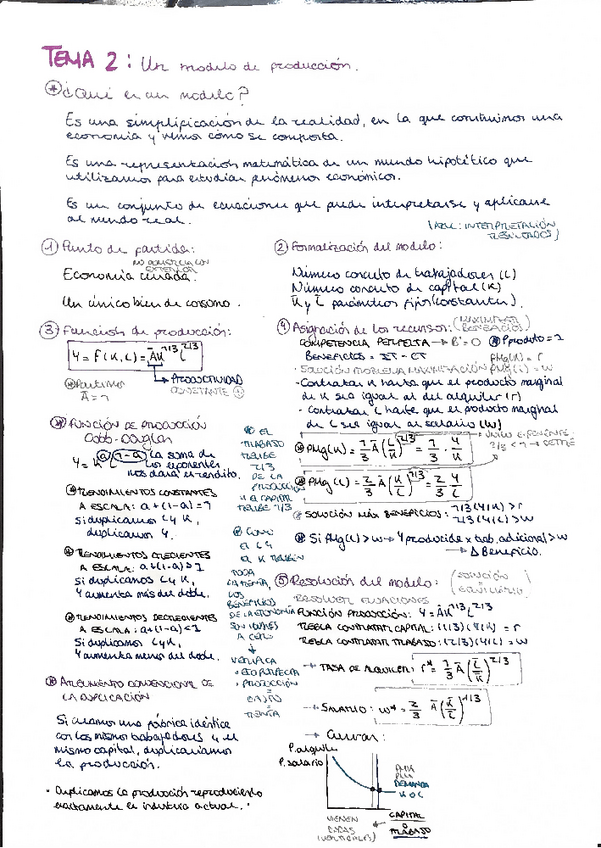 TEMA 2: Un modelo de producción.
* ¿Qué es un modelo?
Es una simplificación de la realidad, en la que construimos una
economía y vemos cómo se comporta.
Es una representación matemática de un mundo hipotético que
utilizamos para estudiar fenómenos económicos.
Es un conjunto de ecuaciones que puede interpretarse y aplicarse
al mundo real.
(AZUL: INTERPRETACIÓN
RESULTADOS)
① Punto de partida:
Economía cerrada.
Un único bien de consumo.
② Formalización del modelo:
Número concreto de trabajadores (L)
Número concreto de capital (K)
K̄ y L̄ parámetros fijos (constantes).
③ Función de producción:
Y = F(K,L) = ĀK^1/3 L^2/3
PRODUCTIVIDAD
CONSTANTE
* Partimos
Ā = 1
* FUNCIÓN DE PRODUCCIÓN
Cobb-Douglas
la suma de
los exponentes
nos dará el rendito.
* RENDIMIENTOS CONSTANTES
A ESCALA: a+(1-a)=1
Si duplicamos L y K,
duplicamos Y.
* RENDIMIENTOS CRECIENTES
A ESCALA: a+(1-a)>1
Si duplicamos L y K,
Y aumenta más del doble.
* RENDIMIENTOS DECRECIENTES
A ESCALA: a+(1-a)<1
Si duplicamos L y K,
Y aumenta menos del doble.
* ARGUMENTO CONVENCIONAL DE
LA DUPLICACIÓN
Si creamos una fábrica idéntica
con los mismos trabajadores y el
mismo capital, duplicaríamos
la producción.
· Duplicamos la producción reproduciendo
exactamente la industria actual.
* EL
TRABAJO
RECIBE
2/3
DE LA
PRODUCCIÓN
Y EL CAPITAL
RECIBE 1/3
* COMO
EL L Y
EL K RECIBEN
TODA
LA RENTA,
LOS
BENEFICIOS
DE LA ECONOMÍA
SON IGUALES
A CERO
↓
VERIFICA
PRODUCCIÓN
=
GASTO
=
RENTA
④ Asignación de los recursos: (MAXIMIZAR
BENEFICIOS)
COMPETENCIA PERFECTA → B°=0 * Pproducto=1
BENEFICIOS = IT - CT PMg(K) = r
· SOLUCIÓN PROBLEMA MAXIMIZACIÓN PMg(L) = w
- Contratar K hasta que el producto marginal
de K sea igual al del alquiler (r)
- Contratar L hasta que el producto marginal
de L sea igual al salario (w)
* PMg(K) = 1/3 Ā (L/K)^2/3 = 1/3 · Y/K
* PMg(L) = 2/3 Ā (K/L)^1/3 = 2/3 · Y/L
* SOLUCIÓN MÁX BENEFICIOS: 1/3(Y/K) > r
2/3(Y/L) > w
* Si PMg(L) > w → Y producida x trab. adicional > w
→ Δ Beneficio.
⑤ Resolución del modelo: (SOLUCIÓN =
EQUILIBRIO)
RESOLVER ECUACIONES
FUNCIÓN PRODUCCIÓN: Y = ĀK^1/3 L^2/3
REGLA CONTRATAR CAPITAL: (1/3)(Y/K) = r
REGLA CONTRATAR TRABAJO: (2/3)(Y/L) = w
→ TASA DE ALQUILER: r* = 1/3 Ā (L̄/K̄)^2/3
→ SALARIO: w* = 2/3 Ā (K̄/L̄)^1/3
→ Curvas:
P. alquiler
P. salario
DEMANDA
K O L
VIENEN
DADAS
(VERTICALES)
CAPITAL
O
TRABAJO